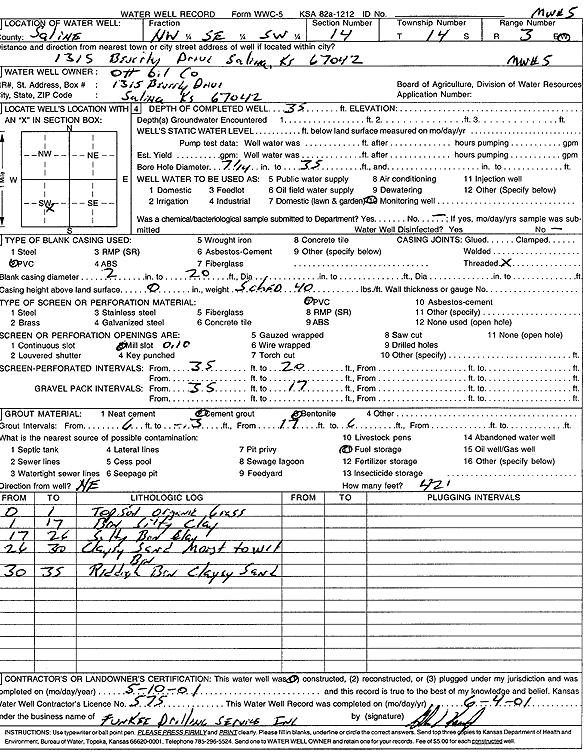 WATER WELL RECORD Form WWC-5 KSA 82a-1212 ID No. MW#5
LOCATION OF WATER WELL: Fraction Section Number Township Number Range Number
County: Saline NW ¼ SE ¼ SW ¼ 14 T 14 S R 3 E/W
Distance and direction from nearest town or city street address of well if located within city?
1315 Beverly Drive Salina, Ks 67042 MW#5
WATER WELL OWNER: Ott Oil Co
RR#, St. Address, Box # : 1315 Beverly Drive Board of Agriculture, Division of Water Resources
City, State, ZIP Code : Salina Ks 67042 Application Number:
LOCATE WELL'S LOCATION WITH AN "X" IN SECTION BOX:
N
NW NE
W E
SW X SE
S
1 Mile
4 DEPTH OF COMPLETED WELL 35 ft. ELEVATION:
Depth(s) Groundwater Encountered 1. ft. 2. ft. 3. ft.
WELL'S STATIC WATER LEVEL ft. below land surface measured on mo/day/yr
Pump test data: Well water was ft. after hours pumping gpm
Est. Yield gpm: Well water was ft. after hours pumping gpm
Bore Hole Diameter 7 1/4 in. to 35 ft., and in. to ft.
WELL WATER TO BE USED AS: 5 Public water supply 8 Air conditioning 11 Injection well
1 Domestic 3 Feedlot 6 Oil field water supply 9 Dewatering 12 Other (Specify below)
2 Irrigation 4 Industrial 7 Domestic (lawn & garden) 10 Monitoring well
Was a chemical/bacteriological sample submitted to Department? Yes No ; If yes, mo/day/yrs sample was submitted
Water Well Disinfected? Yes No
TYPE OF BLANK CASING USED: 5 Wrought iron 8 Concrete tile CASING JOINTS: Glued Clamped
1 Steel 3 RMP (SR) 6 Asbestos-Cement 9 Other (specify below) Welded
2 PVC 4 ABS 7 Fiberglass Threaded X
Blank casing diameter 2 in. to 20 ft., Dia in. to ft., Dia in. to ft.
Casing height above land surface 0 in., weight Sched 40 lbs./ft. Wall thickness or gauge No.
TYPE OF SCREEN OR PERFORATION MATERIAL: 7 PVC 10 Asbestos-cement
1 Steel 3 Stainless steel 5 Fiberglass 8 RMP (SR) 11 Other (specify)
2 Brass 4 Galvanized steel 6 Concrete tile 9 ABS 12 None used (open hole)
SCREEN OR PERFORATION OPENINGS ARE: 5 Gauzed wrapped 8 Saw cut 11 None (open hole)
1 Continuous slot 3 Mill slot 0.10 6 Wire wrapped 9 Drilled holes
2 Louvered shutter 4 Key punched 7 Torch cut 10 Other (specify)
SCREEN-PERFORATED INTERVALS: From 35 ft. to 20 ft., From ft. to ft.
From ft. to ft., From ft. to ft.
GRAVEL PACK INTERVALS: From 35 ft. to 17 ft., From ft. to ft.
From ft. to ft., From ft. to ft.
GROUT MATERIAL: 1 Neat cement 2 Cement grout 3 Bentonite 4 Other
Grout Intervals: From 6 ft. to .5 ft., From 17 ft. to 6 ft., From ft. to ft.
What is the nearest source of possible contamination: 10 Livestock pens 14 Abandoned water well
1 Septic tank 4 Lateral lines 7 Pit privy 11 Fuel storage 15 Oil well/Gas well
2 Sewer lines 5 Cess pool 8 Sewage lagoon 12 Fertilizer storage 16 Other (specify below)
3 Watertight sewer lines 6 Seepage pit 9 Feedyard 13 Insecticide storage
Direction from well? NE How many feet? 42'
FROM TO LITHOLOGIC LOG FROM TO PLUGGING INTERVALS
0 1 Topsoil Organic Grass
1 17 Brn Silty Clay
17 26 Silty Brn Clay
26 30 Clayey Sand Moist to wet Brn
30 35 Reddish Brn Clayey Sand
CONTRACTOR'S OR LANDOWNER'S CERTIFICATION: This water well was (1) constructed, (2) reconstructed, or (3) plugged under my jurisdiction and was
completed on (mo/day/year) 5-10-01 and this record is true to the best of my knowledge and belief. Kansas
Water Well Contractor's Licence No. 575 This Water Well Record was completed on (mo/day/yr) 6-4-01
under the business name of Funkee Drilling Service Inc by (signature)
INSTRUCTIONS: Use typewriter or ball point pen. PLEASE PRESS FIRMLY and PRINT clearly. Please fill in blanks, underline or circle the correct answers. Send top three copies to Kansas Department of Health and
Environment, Bureau of Water, Topeka, Kansas 66620-0001. Telephone 785-296-5524. Send one to WATER WELL OWNER and retain one for your records. Fee of $5.00 for each constructed well.